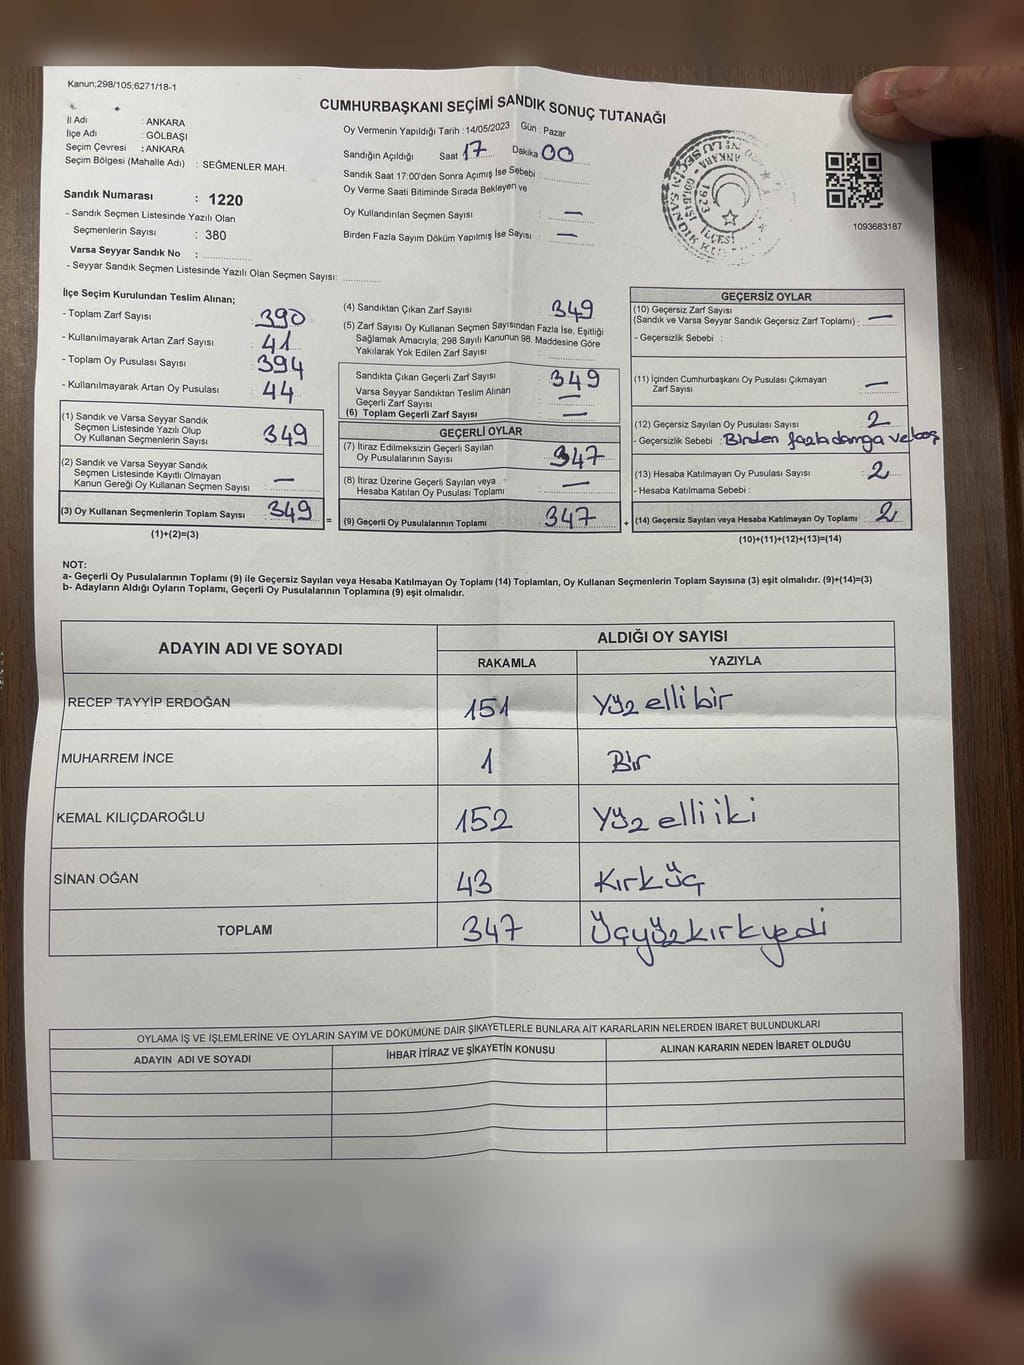 Kanun;298/105;6271/18-1
CUMHURBAŞKANI SEÇİMİ SANDIK SONUÇ TUTANAĞI
İl Adı : ANKARA
İlçe Adı : GÖLBAŞI
Seçim Çevresi : ANKARA
Seçim Bölgesi (Mahalle Adı) : SEĞMENLER MAH.
Sandık Numarası : 1220
- Sandık Seçmen Listesinde Yazılı Olan
Seçmenlerin Sayısı : 380
Varsa Seyyar Sandık No :
- Seyyar Sandık Seçmen Listesinde Yazılı Olan Seçmen Sayısı:
Oy Vermenin Yapıldığı Tarih : 14/05/2023 Gün : Pazar
Sandığın Açıldığı Saat 17 Dakika 00
Sandık Saat 17:00'den Sonra Açımış İse Sebebi :
Oy Verme Saati Bitiminde Sırada Bekleyen ve
Oy Kullandırılan Seçmen Sayısı : —
Birden Fazla Sayım Döküm Yapılmış İse Sayısı : —
1923
ANKARA - GÖLBAŞI
İLÇESİ
1093683187
İlçe Seçim Kurulundan Teslim Alınan;
- Toplam Zarf Sayısı : 390
- Kullanılmayarak Artan Zarf Sayısı : 41
- Toplam Oy Pusulası Sayısı : 394
- Kullanılmayarak Artan Oy Pusulası : 44
(1) Sandık ve Varsa Seyyar Sandık
Seçmen Listesinde Yazılı Olup
Oy Kullanan Seçmenlerin Sayısı : 349
(2) Sandık ve Varsa Seyyar Sandık
Seçmen Listesinde Kayıtlı Olmayan
Kanun Gereği Oy Kullanan Seçmen Sayısı : —
(3) Oy Kullanan Seçmenlerin Toplam Sayısı : 349
(1)+(2)=(3)
=
(4) Sandıktan Çıkan Zarf Sayısı : 349
(5) Zarf Sayısı Oy Kullanan Seçmen Sayısından Fazla İse, Eşitliği
Sağlamak Amacıyla, 298 Sayılı Kanunun 98. Maddesine Göre
Yakılarak Yok Edilen Zarf Sayısı :
Sandıkta Çıkan Geçerli Zarf Sayısı : 349
Varsa Seyyar Sandıktan Teslim Alınan
Geçerli Zarf Sayısı : —
(6) Toplam Geçerli Zarf Sayısı : —
GEÇERLİ OYLAR
(7) İtiraz Edilmeksizin Geçerli Sayılan
Oy Pusulalarının Sayısı : 347
(8) İtiraz Üzerine Geçerli Sayılan veya
Hesaba Katılan Oy Pusulası Toplamı : —
(9) Geçerli Oy Pusulalarının Toplamı : 347
+
GEÇERSİZ OYLAR
(10) Geçersiz Zarf Sayısı
(Sandık ve Varsa Seyyar Sandık Geçersiz Zarf Toplamı) : —
- Geçersizlik Sebebi :
(11) İçinden Cumhurbaşkanı Oy Pusulası Çıkmayan
Zarf Sayısı : —
(12) Geçersiz Sayılan Oy Pusulası Sayısı : 2
- Geçersizlik Sebebi : Birden fazla damga ve boş
(13) Hesaba Katılmayan Oy Pusulası Sayısı : 2
- Hesaba Katılmama Sebebi :
(14) Geçersiz Sayılan veya Hesaba Katılmayan Oy Toplamı : 2
(10)+(11)+(12)+(13)=(14)
NOT:
a- Geçerli Oy Pusulalarının Toplamı (9) ile Geçersiz Sayılan veya Hesaba Katılmayan Oy Toplamı (14) Toplamları, Oy Kullanan Seçmenlerin Toplam Sayısına (3) eşit olmalıdır. (9)+(14)=(3)
b- Adayların Aldığı Oyların Toplamı, Geçerli Oy Pusulalarının Toplamına (9) eşit olmalıdır.
ADAYIN ADI VE SOYADI ALDIĞI OY SAYISI
RAKAMLA YAZIYLA
RECEP TAYYİP ERDOĞAN 151 Yüz elli bir
MUHARREM İNCE 1 Bir
KEMAL KILIÇDAROĞLU 152 Yüz elli iki
SİNAN OĞAN 43 Kırküç
TOPLAM 347 Üçyüzkırkyedi
OYLAMA İŞ VE İŞLEMLERİNE VE OYLARIN SAYIM VE DÖKÜMÜNE DAİR ŞİKAYETLERLE BUNLARA AİT KARARLARIN NELERDEN İBARET BULUNDUKLARI
ADAYIN ADI VE SOYADI İHBAR İTİRAZ VE ŞİKAYETİN KONUSU ALINAN KARARIN NEDEN İBARET OLDUĞU